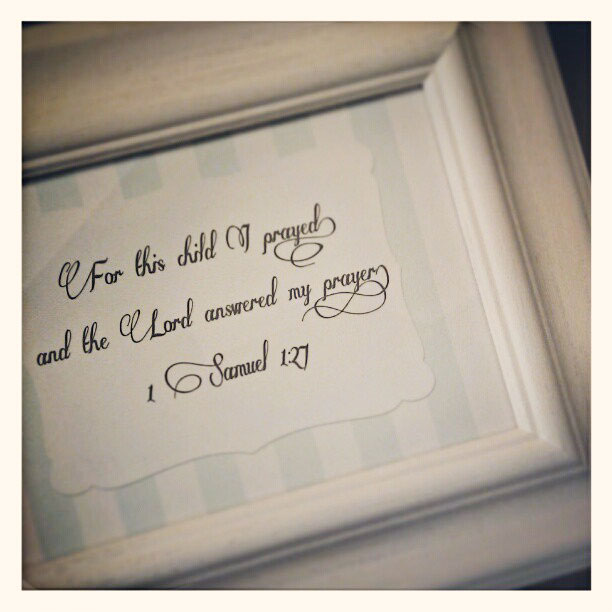 For this child I prayed
and the Lord answered my prayer
1 Samuel 1:27